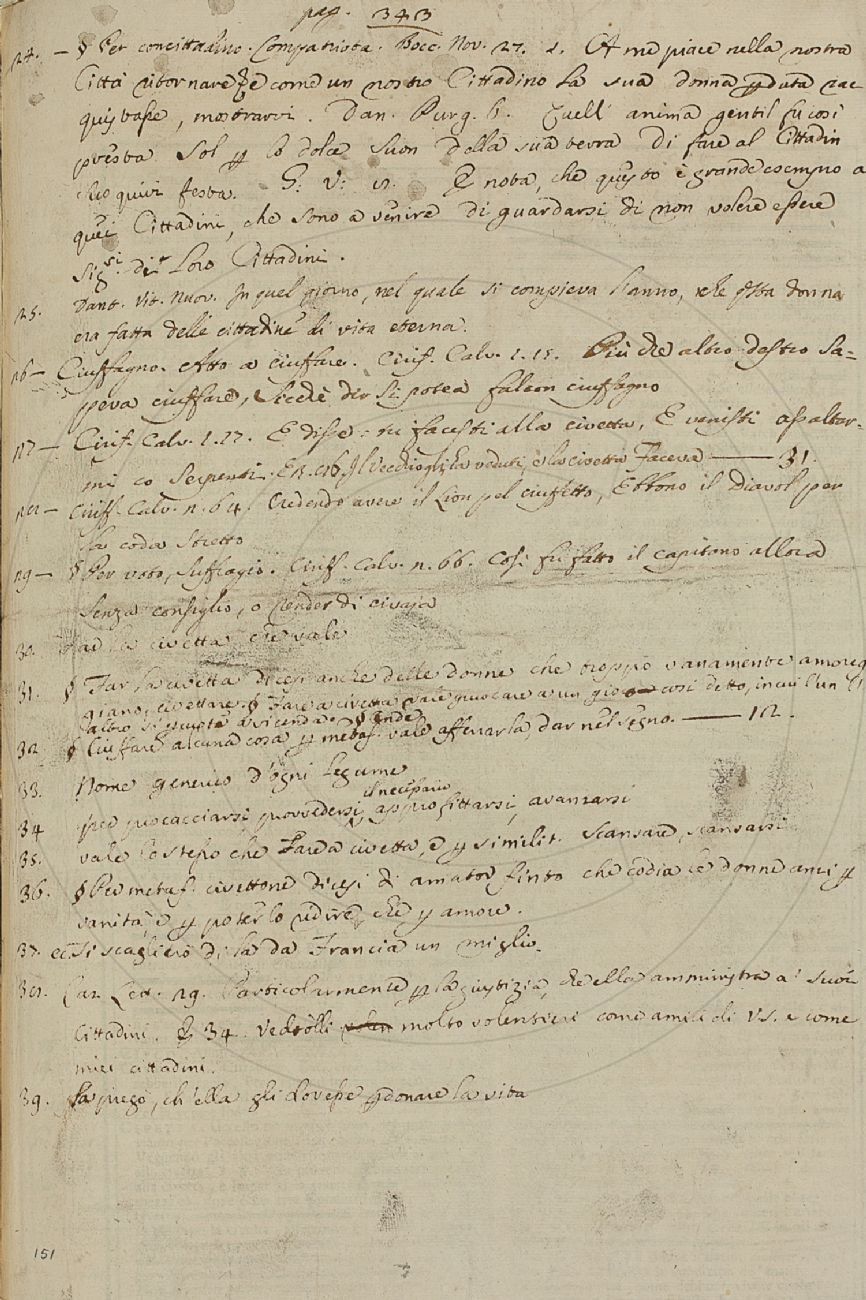 pag. 343
24. — § Per concittadino. Compatriota. Bocc. Nov. 27. 1. A me piace nella nostra
Città ritornare, e come un nostro Cittadino la sua donna pduta rac
quistasse, mostrarvi. Dan. Purg. 6. Quell' anima gentil fu così
presta Sol p lo dolce Suon della sua terra Di fare al Cittadin
suo quivi festa. G: V: 12. E nota, che questo è grande esempio a
quei Cittadini, che sono a venire di guardarsi di non volere essere
Sigsi. dei Loro Cittadini.
25. Dant. Vit. Nuov. In quel giorno, nel quale si compieva l'anno, che qsta donna
era fatta delle cittadine di vita eterna.
26 — Ciuffagno. Atto a ciuffare. Ciuf. Calv. 1. 15. Più che altro destro Sa=
peva ciuffare, Sicchè dir si potea falcon ciuffagno
27 — Ciuf. Calv. 1. 27. E disse: tu facesti alla civetta, E venisti assaltar-
mi co Serpenti. E n. 16. Il Vecchio gli ha veduti, e la civetta Faceva — 31.
28 — Ciuff. Calv. n. 64. Credendo avere il Lion pel ciuffetto, Ebbono il Diavol per
la coda stretto
29 — § Per voto, Suffragio. Ciuff. Calv. n. 66. Così fu fatto il capitano allora
Senza consiglio, o render di civaja
30. Far la civetta che vale
31. § Far la civetta dicesi anche delle donne che troppo vanamente amoreg
giano, civettare. § Fare a civetta vale giuocare a un giuoco così detto, in cui l'un l'
altro si percuote a vicenda
32 § Ciuffare alcuna cosa p metaf. vale afferrarla, dar nel segno. — 12.
33. Nome generico d'ogni legume
34 per procacciarsi, provvedersi il necessario, approfittarsi, avanzarsi
35. vale lo stesso che Fare a civetta, e p similit. Scansare, scansarsi
36. § Per metaf. civettone dicesi di amator finto che codia le donne anzi p
vanità, e p poterlo ridire, che p amore.
37. ec. Si scagliciò di là da Francia un miglio.
38. Car. Lett. 29. Particolarmente p la giustizia, che ella amministra a' suoi
Cittadini. E 34. Vedrolli molto volentieri come amici di V.S. e come
miei cittadini.
39. La pregò, ch'ella gli dovesse pdonare la vita
151